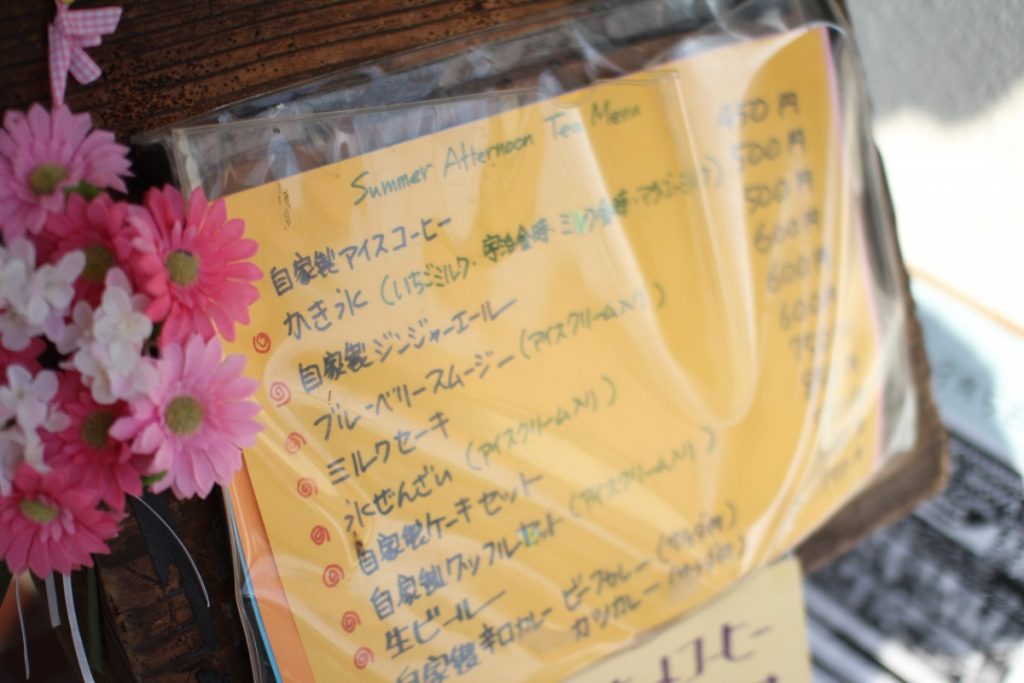 Summer Afternoon Tea Menu
自家製アイスコーヒー 450円
かき氷 (いちごミルク・宇治金時・ミルク金時・ 500円
自家製ジンジャーエール 500円
ブルーベリースムージー (アイスクリーム入り) 600円
ミルクセーキ 600円
氷ぜんざい (アイスクリーム入り) 600
自家製ケーキセット
自家製ワッフルセット (アイスクリーム入り)
生ビール
自家製辛口カレー ビーフカレー
カツカレー
コーヒー